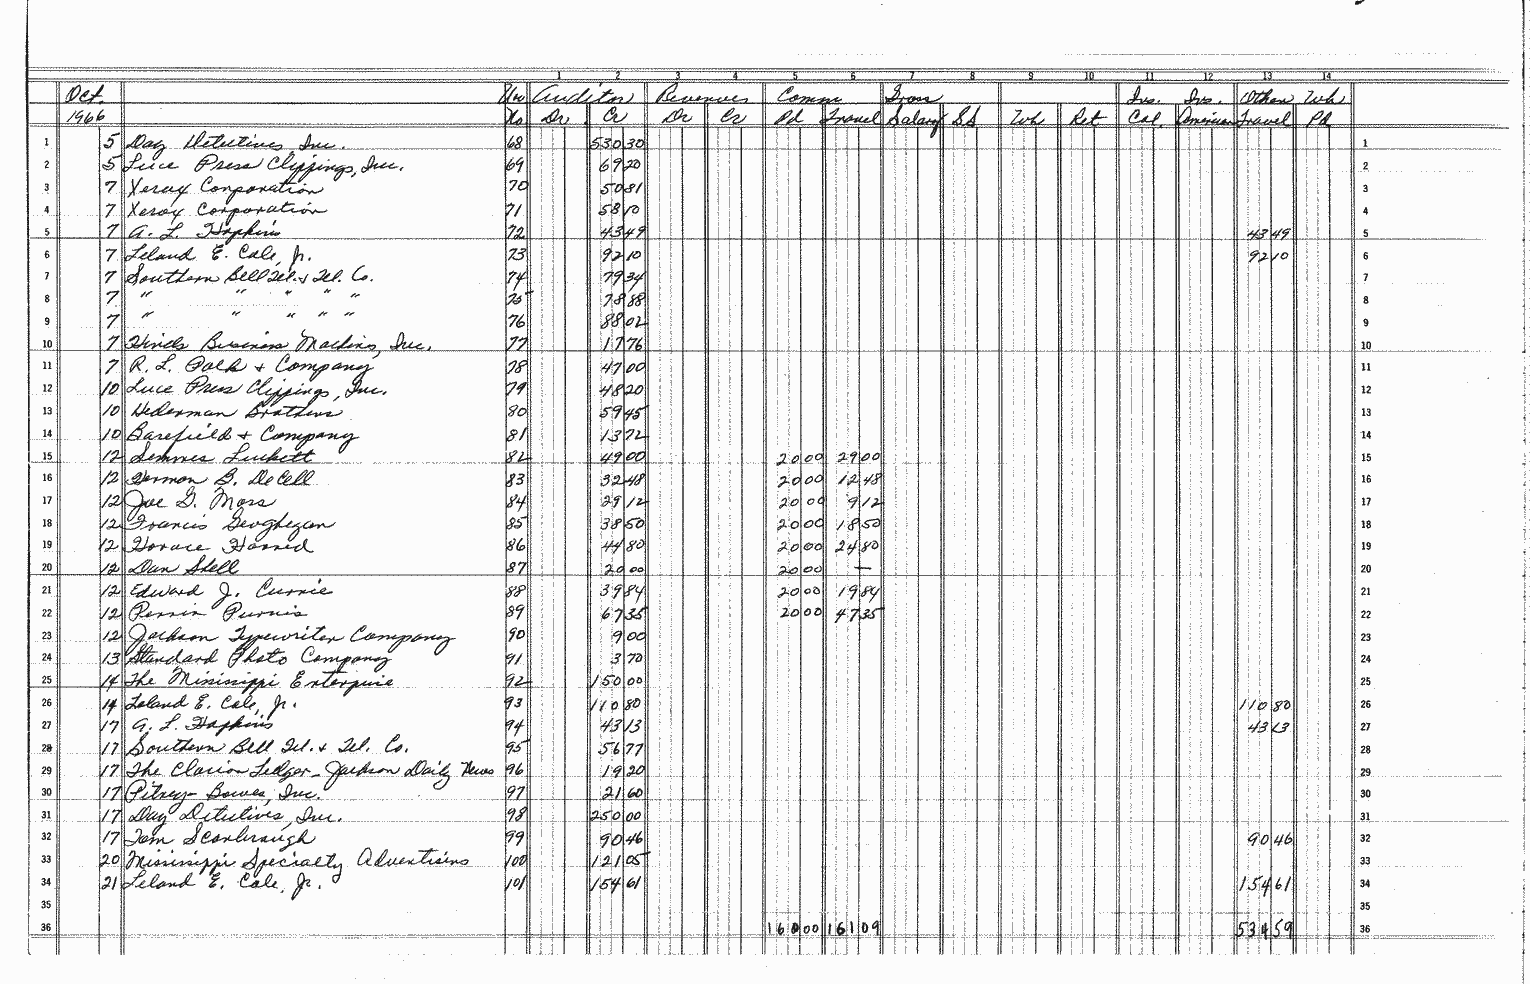 1 2 3 4 5 6 7 8 9 10 11 12 13 14
Oct. Auditor Revenues Comm Gross Ins. Ins. Other Wh
1966 No Dr Cr Dr Cr Pd Travel Salary SS Wh Ret Cal. American Travel Pd
1 5 Day Detectives Inc. 68 530 30 1
2 5 Luce Press Clippings, Inc. 69 69 20 2
3 7 Xerox Corporation 70 50 81 3
4 7 Xerox Corporation 71 58 10 4
5 7 A. L. Hopkins 72 43 49 43 49 5
6 7 Leland E. Cole, Jr. 73 92 10 92 10 6
7 7 Southern Bell Tel. & Tel. Co. 74 79 34 7
8 7 " " " " " 75 78 88 8
9 7 " " " " " 76 88 02 9
10 7 Hinds Business Machins, Inc. 77 17 76 10
11 7 R. L. Polk & Company 78 47 00 11
12 10 Luce Press Clippings, Inc. 79 48 20 12
13 10 Hederman Brothers 80 59 45 13
14 10 Barefield & Company 81 13 72 14
15 12 Semmes Luckett 82 49 00 20 00 29 00 15
16 12 Herman B. DeCell 83 32 48 20 00 12 48 16
17 12 Joe G. Moss 84 29 12 20 00 9 12 17
18 12 Francis Geoghegan 85 38 50 20 00 18 50 18
19 12 Horace Harned 86 44 80 20 00 24 80 19
20 12 Dan Shell 87 20 00 20 00 — 20
21 12 Edward J. Currie 88 39 84 20 00 19 84 21
22 12 Perrin Purvis 89 67 35 20 00 47 35 22
23 12 Jackson Typewriter Company 90 9 00 23
24 13 Standard Photo Company 91 3 70 24
25 14 The Mississippi Enterprise 92 150 00 25
26 14 Leland E. Cole, Jr. 93 110 80 110 80 26
27 17 A. L. Hopkins 94 43 13 43 13 27
28 17 Southern Bell Tel. & Tel. Co. 95 56 77 28
29 17 The Clarion Ledger - Jackson Daily News 96 19 20 29
30 17 Pitney-Bowes, Inc. 97 21 60 30
31 17 Day Detectives, Inc. 98 250 00 31
32 17 Tom Scarbrough 99 90 46 90 46 32
33 20 Mississippi Specialty Advertising 100 121 05 33
34 21 Leland E. Cole, Jr. 101 154 61 154 61 34
35 35
36 160 00 161 09 534 59 36